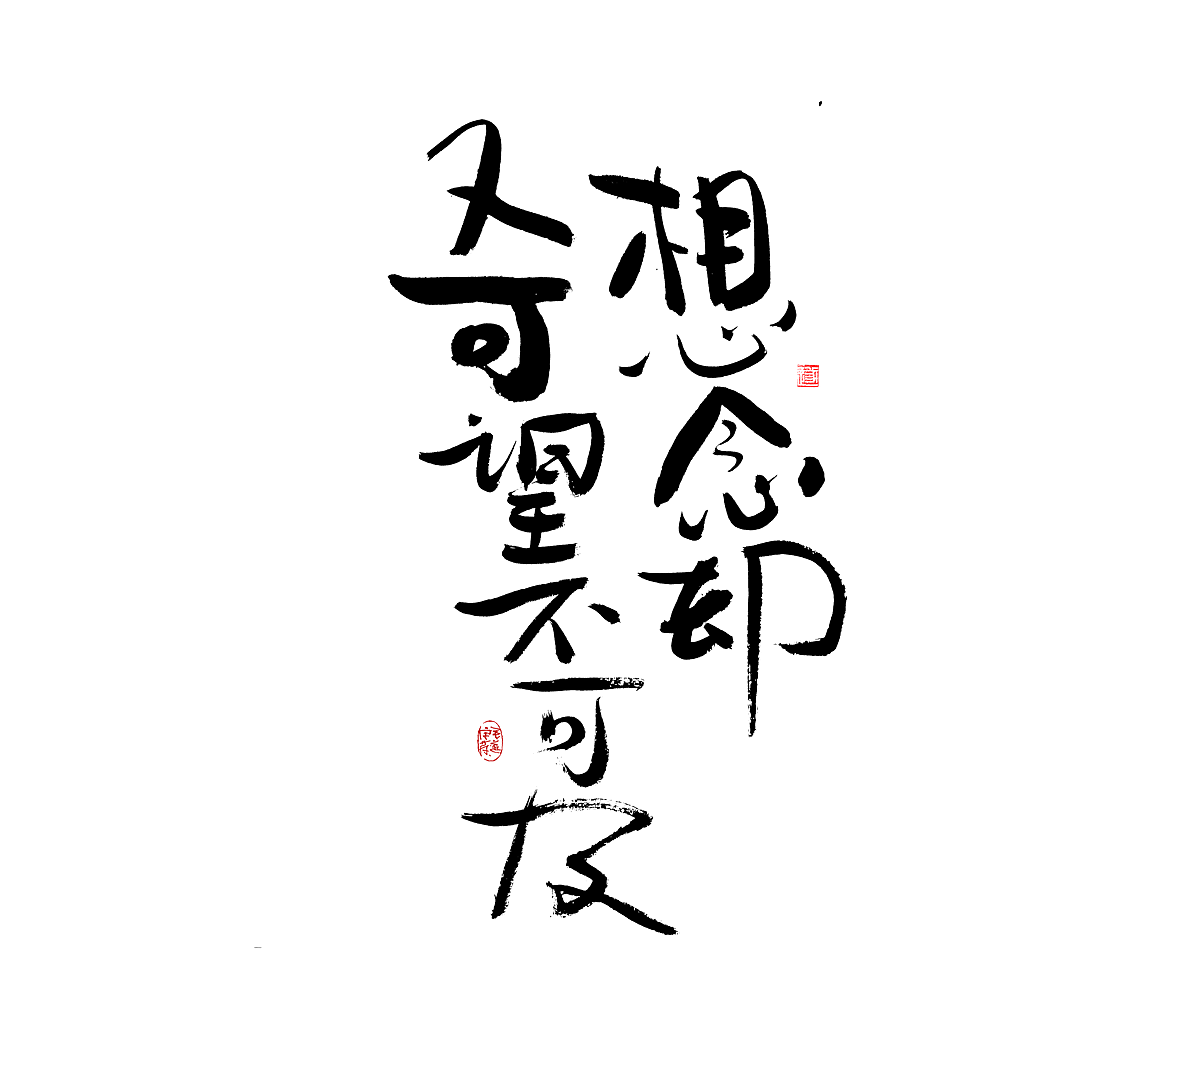 想念却
又可望不可及